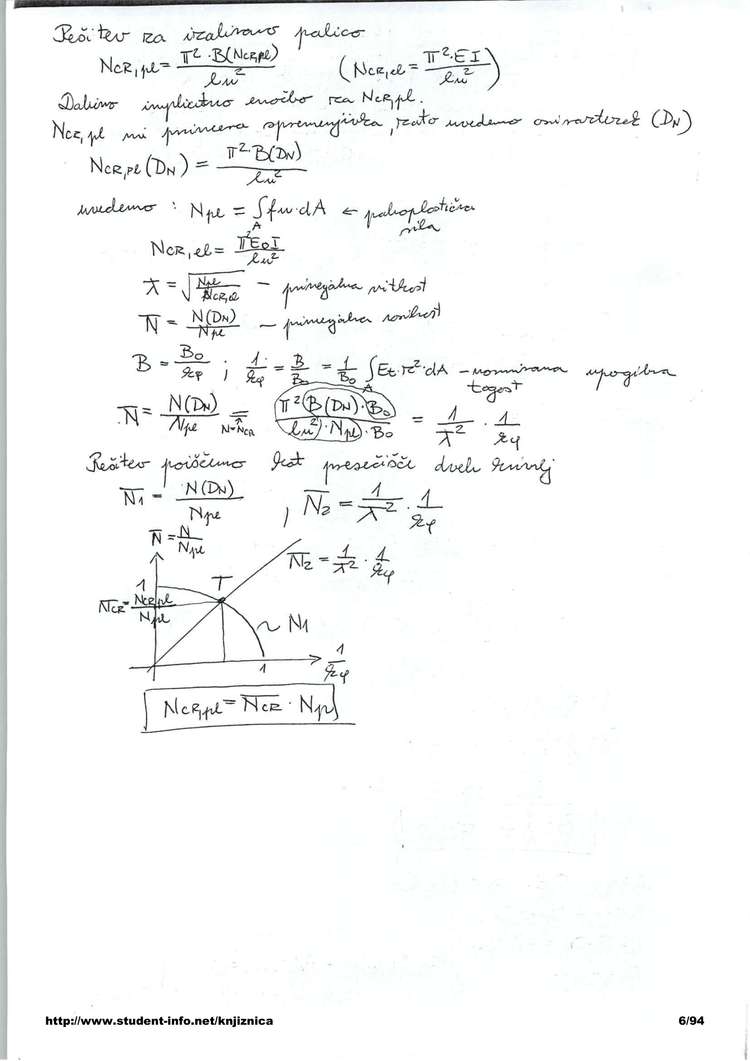 Rešitev za izolirano palico
N_CR,pl = π²·B(N_CR,pl) / l_u² (N_CR,el = π²·EI / l_u²)
Dobimo implicitno enačbo za N_CR,pl.
N_CR,pl ni primerna spremenljivka, zato uvedemo osni raztezek (D_N)
N_CR,pl(D_N) = π²·B(D_N) / l_u²
uvedemo : N_pl = ∫_A f_u·dA ← polnoplastična sila
N_CR,el = π²E₀I / l_u²
λ̄ = √(N_pl / N_CR,el) – primerjalna vitkost
N̄ = N(D_N) / N_pl – primerjalna
B = B₀ / κφ ; 1/κφ = B/B₀ = 1/B₀ ∫_A E_t·z²·dA – normirana upogibna togost
N̄ = N(D_N) / N_pl =(N=N_CR) π²(B(D_N)·B₀) / (l_u²)·N_pl·B₀ = 1/λ̄² · 1/κφ
Rešitev poiščemo kot presečišče dveh krivulj
N̄₁ = N(D_N) / N_pl , N̄₂ = 1/λ̄² · 1/κφ
N̄ = N / N_pl
N̄₂ = 1/λ̄² · 1/κφ
1
T
N̄_CR = N_CR,pl / N_pl
~ N₁
1
1/κφ
N_CR,pl = N̄_CR · N_pl
http://www.student-info.net/knjiznica 6/94